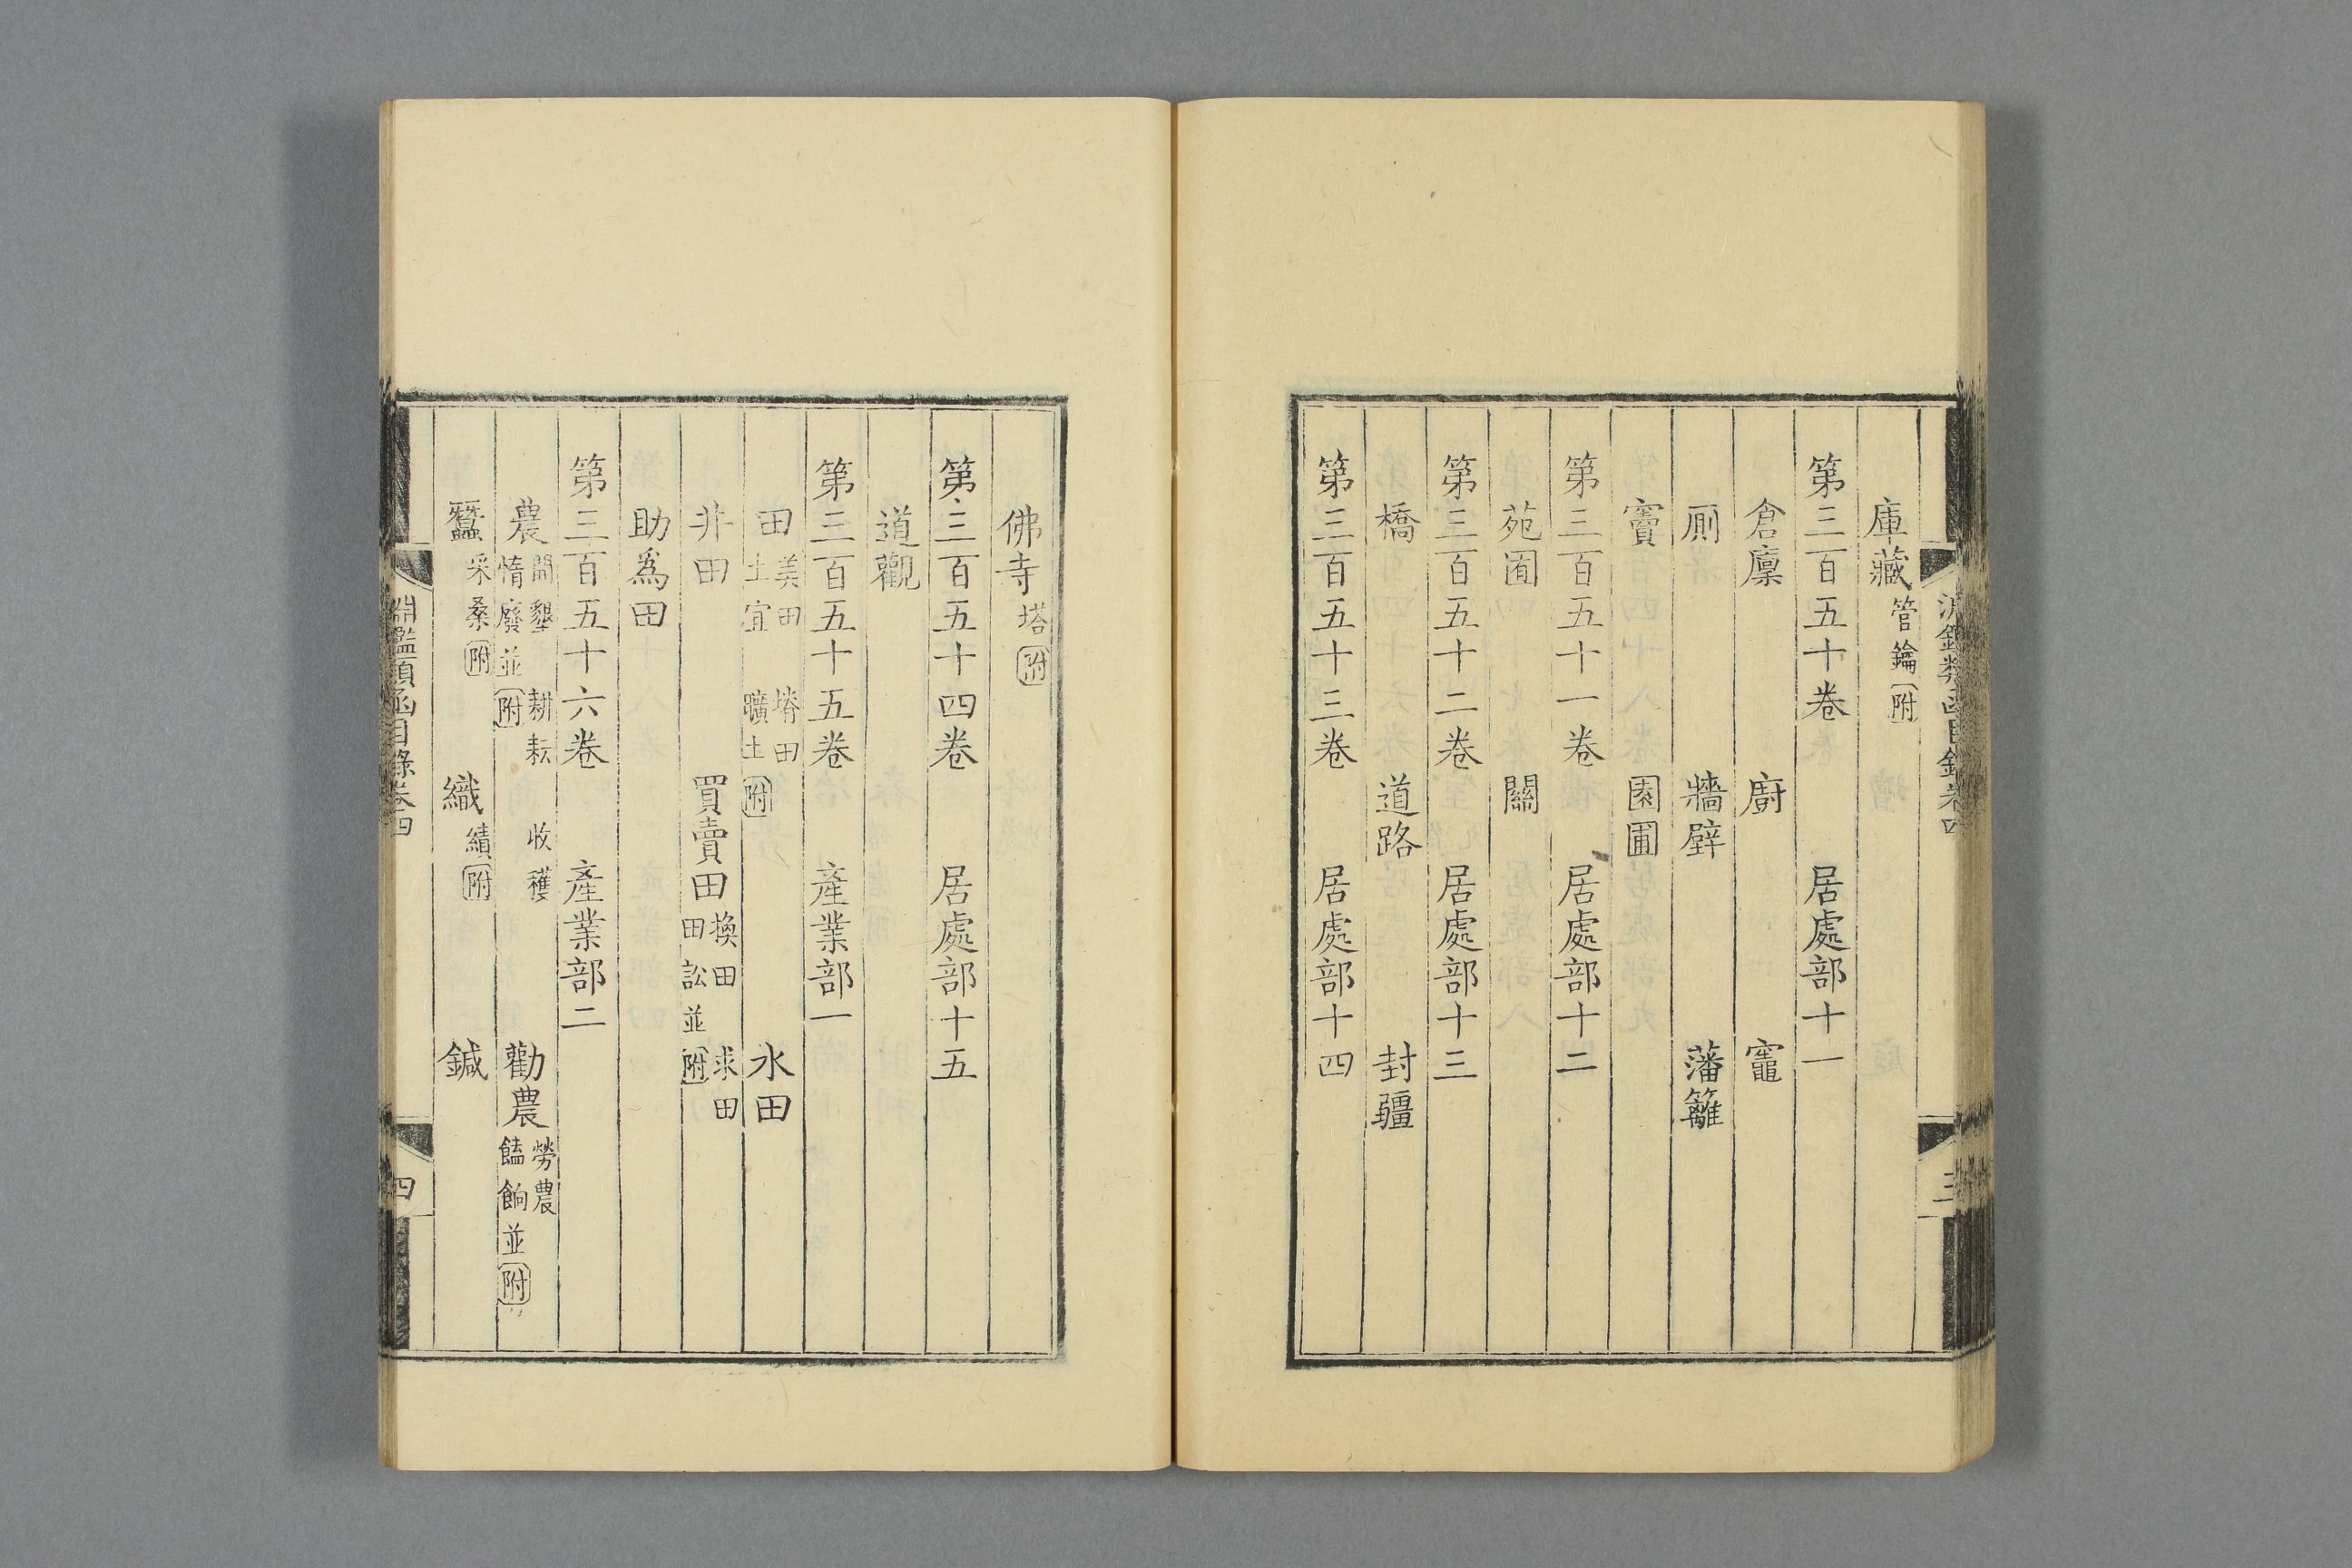 淵鑑類函目錄卷四
三
庫藏 管鑰附
第三百五十卷 居處部十一
倉廩 廚 竈
厠 牆壁 藩籬
竇 園圃
第三百五十一卷 居處部十二
苑囿 關
第三百五十二卷 居處部十三
橋 道路 封疆
第三百五十三卷 居處部十四
佛寺 塔附
第三百五十四卷 居處部十五
道觀
第三百五十五卷 產業部一
田 美田 塉田 土宜 曠土附 水田
井田 買賣田 換田 求田 田訟並附
助爲田
第三百五十六卷 產業部二
農 開墾 耕耘 收穫 惰廢並附 勸農 勞農 饁餉並附
蠶 采桑附 織 績附 鍼
淵鑑類函目錄卷四
四